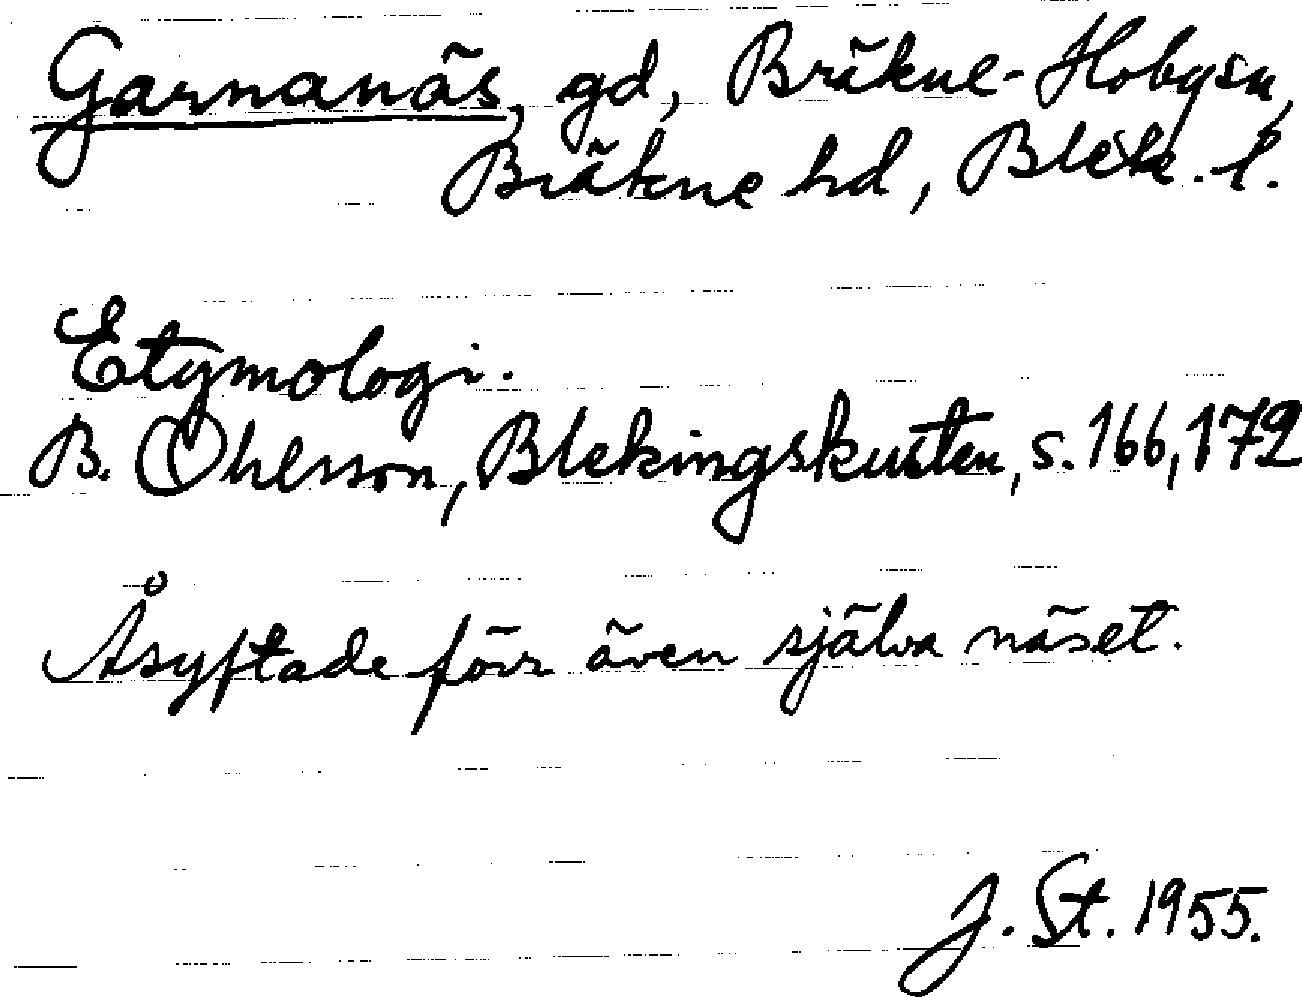 Garnanäs, gd, Bräkne-Hoby sn,
Bräkne hd, Blek. l.
Etymologi.
B. Ohlsson, Blekingskusten, s. 166, 172
Åsyftade förr även själva näset.
J. St. 1955.